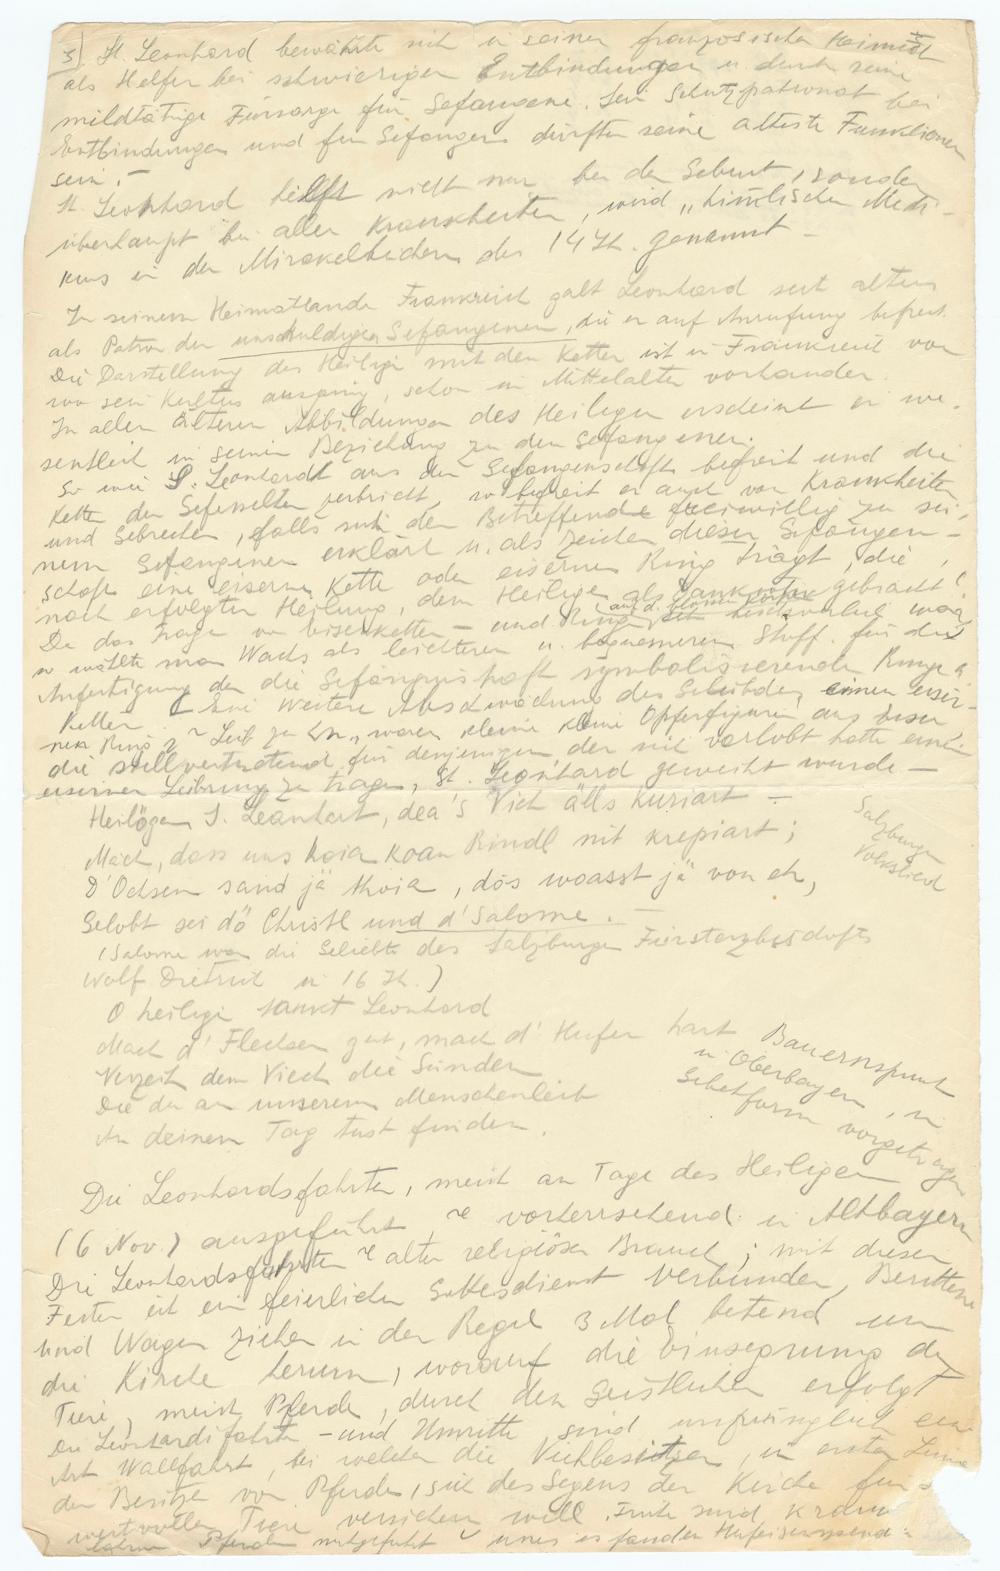 3) St. Leonhard bewährte sich in seiner französischen Heimat
als Helfer bei schwierigen Entbindungen u. durch seine
mildtätige Fürsorge für Gefangene. Sein Schutzpatronat bei
Entbindungen und für Gefangene dürften seine älteste Funktionen
sein. –
St. Leonhard hilft nicht nur bei der Geburt, sondern
überhaupt bei allen Krankheiten, wird „himlischer Medi-
kus in den Mirakelbüchern des 14 Jh. genannt –
In seinem Heimatlande Frankreich galt Leonhard seit alters
als Patron der unschuldigen Gefangenen, die er auf Anrufung befreit.
Die Darstellung des Heiligen mit den Ketten ist in Frankreich von
wo sein Kultus ausging, schon im Mittelalter vorhanden.
In allen älteren Abbildungen des Heiligen erscheint er we-
sentlich in seiner Beziehung zu den Gefangenen.
So wie S. Leonhardt aus der Gefangenschaft befreit und die
Ketten der Gefesselten zerbricht, so befreit er auch von Krankheiten
und Gebrechen, falls sich der Betreffende freiwillig zu sei-
nem Gefangenen erklärt u. als Zeichen dieser Gefangen-
schaft eine eiserne Kette oder eisernen Ring trägt, die
nach erfolgter Heilung, dem Heiligen als Dankopfer gebracht
auf d. blossen Körper
Da das Tragen von Eisenketten – und Ringen sehr beschwerlich war
so wählte man Wachs als leichteren u. bequemeren Stoff für die
Anfertigung der die Gefängnishaft symbolisierenden Ringe u
Ketten. Eine weitere Abschwächung des Gelübdes, einen eiser-
nen Ring Leib zu waren kleine Opferfiguren aus Eisen
die stellvertretend für denjenigen der sich verlobt hatte einen
eisernen Leibring zu tragen, St. Leonhard geweiht wurde –
Heilögen S. Leanhart, dea's Viech älls kuriart –
Mach, dass uns koia koan Rindl nit krepiart;
D'Ochsen sand jä thoia, dös woasst jä von eh,
Gelobt sei dö Christl und d'Salome. –
Salzburger
Volkslied
(Salome war die Geliebte des Salzburger Fürsterzbischofs
Wolf Dietrich im 16 Jh.)
O heiliger Sankt Leonhard
Mach d'Flechsen gut, mach d'Hufen hart
Verzeih dem Viech die Sünden
Die du an unserem Menschenleib
An deinem Tag tust finden.
Bauernspruch
in Oberbayern, in
Gebetform vorgetragen
Die Leonhardsfahrten, meist am Tage des Heiligen
(6 Nov.) ausgeführt vorherrschend in Altbayern
Die Leonhardsfahrten alter religiöser Brauch; mit diesen
Festen ist ein feierlicher Gottesdienst verbunden, Berittene
und Wagen ziehen in der Regel 3 Mal betend um
die Kirche herum, worauf die Einsegnung der
Tiere, meist Pferde, durch den Geistlichen erfolgt
Die Leonhardifahrten – und Umritte sind ursprünglich eine
Art Wallfahrt, bei welcher die Viehbesitzer, in erster Linie
der Besitzer von Pferden, sich des Segens der Kirche für s
wertvollen Tiere versichern will. Früh sind
Pferden mitgeführt es fanden Hufeisenspend